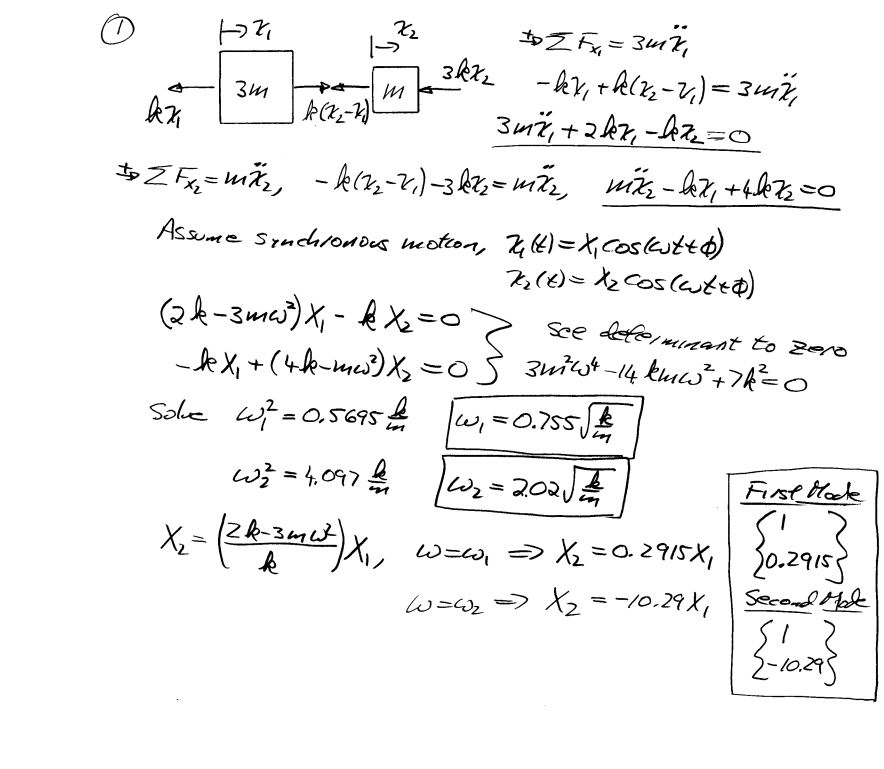 ①
→ x₁
→ x₂
3m
m
kx₁
k(x₂-x₁)
3kx₂
+→ ΣFx₁ = 3mẍ₁
-kx₁ + k(x₂-x₁) = 3mẍ₁
3mẍ₁ + 2kx₁ - kx₂ = 0
+→ ΣFx₂ = mẍ₂, -k(x₂-x₁) - 3kx₂ = mẍ₂, mẍ₂ - kx₁ + 4kx₂ = 0
Assume synchronous motion, x₁(t) = X₁cos(ωt+ϕ)
x₂(t) = X₂cos(ωt+ϕ)
(2k-3mω²)X₁ - kX₂ = 0
-kX₁ + (4k-mω²)X₂ = 0
see determinant to zero
3m²ω⁴ - 14kmω² + 7k² = 0
Solve ω₁² = 0.5695 k/m ω₁ = 0.755√(k/m)
ω₂² = 4.097 k/m ω₂ = 2.02√(k/m)
X₂ = ((2k-3mω²)/k)X₁, ω=ω₁ ⇒ X₂ = 0.2915X₁
ω=ω₂ ⇒ X₂ = -10.29X₁
First Mode
{1
0.2915}
Second Mode
{1
-10.29}